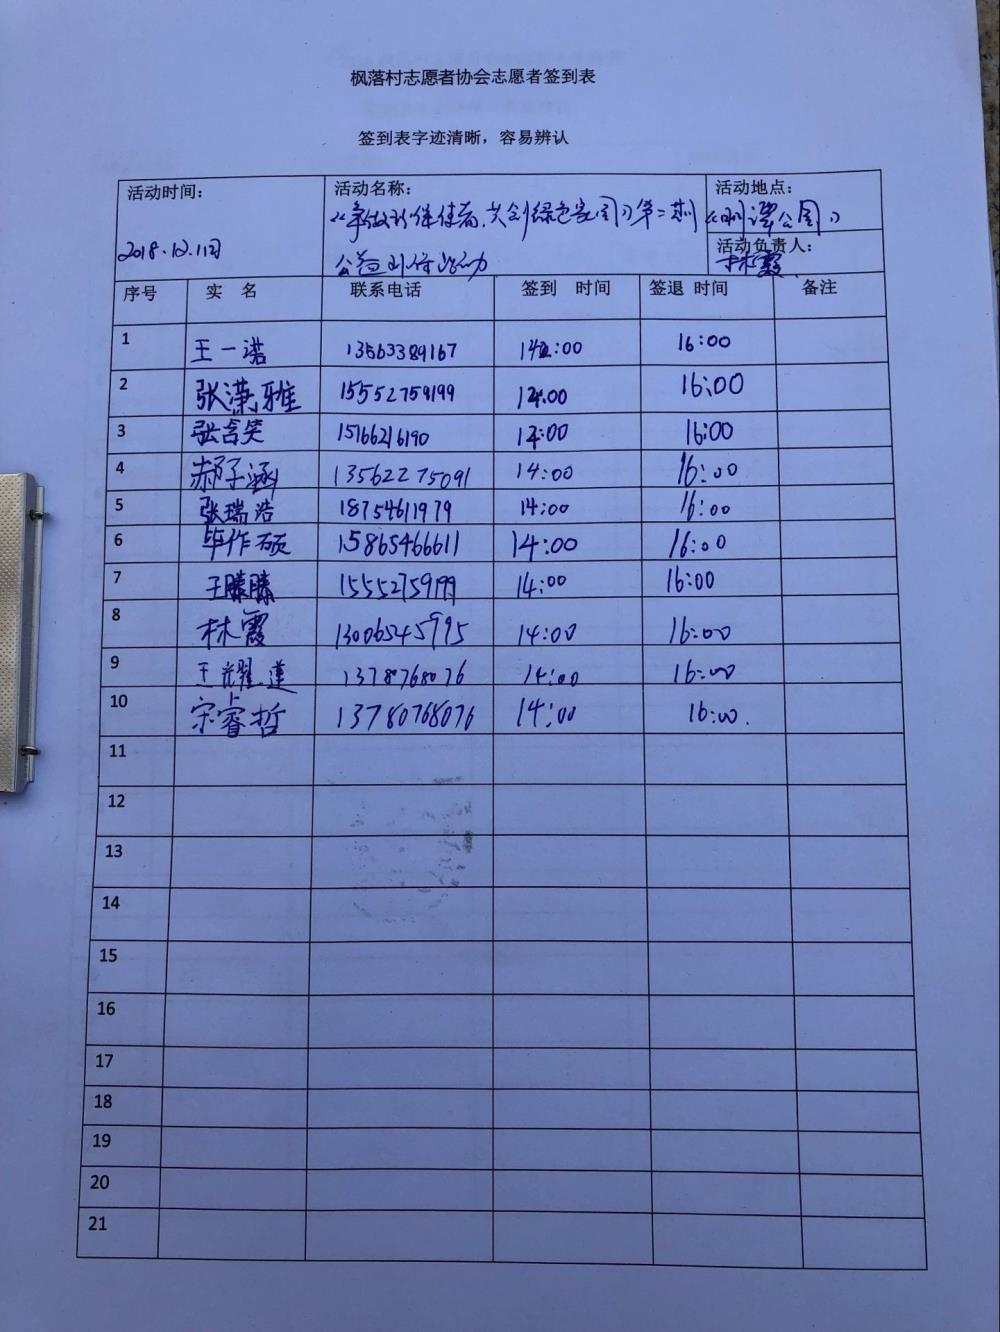 枫落村志愿者协会志愿者签到表
签到表字迹清晰，容易辨认
活动时间： 活动名称： 活动地点：
《争做环保使者，共创绿色家园》第二期 公园》
2018.12.11日 活动负责人：
公益环保活动 林霞
序号 实 名 联系电话 签到 时间 签退 时间 备注
1 王一诺 13563389167 14:00 16:00
2 张潇雅 15552759199 14:00 16:00
3 张含笑 15166216190 14:00 16:00
4 郝子涵 13562275091 14:00 16:00
5 张瑞浩 18754611979 14:00 16:00
6 毕作硕 15865466611 14:00 16:00
7 王滕滕 15552759199 14:00 16:00
8 林霞 13065245995 14:00 16:00
9 王耀莲 13780768076 14:00 16:00
10 宋睿哲 13780768076 14:00 16:00.
11
12
13
14
15
16
17
18
19
20
21